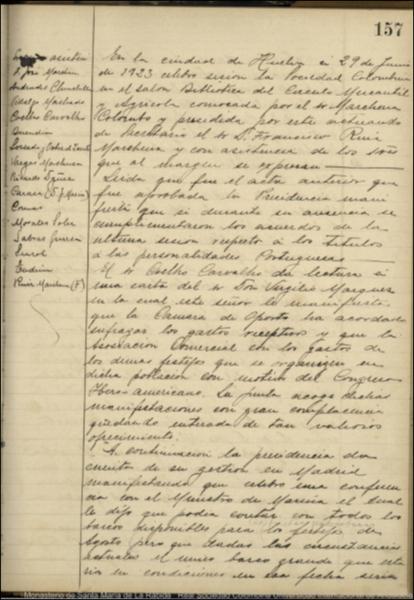 157
En la ciudad de Huelva a 29 de Junio
de 1923 celebro sesion la Sociedad Colombina
en el salon Biblioteca del Circulo Mercantil
y Agricola convocada por el sr Marchena
Colombo y presidida por este actuando
de Secretario el sr D. Francisco Ruiz
Marchena y con asistencia de los sres
que al margen se expresan
Leida que fue el acta anterior que
fue aprobada la Presidencia mani
festó que si durante su ausencia se
cumplimentaron los acuerdos de la
ultima sesion respecto á los titulos
á las personalidades Portuguesas
El sr Coelho Carvalho da lectura á
una carta del sr Don Virgilio Marques
en la cual este señor le manifiesta
que la Camara de Oporto ha acordado
sufragar los gastos receptivos y que la
Asociacion Comercial con los gastos de
los demas festejos que se organizen en
dicha poblacion con motivo del Congreso
Ibero americano. La junta acoge dichas
manifestaciones con gran complacencia
quedando enterada de tan valiosos
ofrecimientos.
A continuacion la presidencia da
cuenta de su gestion en Madrid
manifestando que celebro una conferen
cia con el Ministro de Marina el cual
le dijo que podia contar con todos los
barcos disponibles para los festejos de
Agosto pero que dadas las circunstancias
actuales el unico barco grande que esta
ria en condiciones en esa fecha seria
asisten
Coelho Carvalho
Vargas Machuca
Morales
Ruiz Marchena (F)